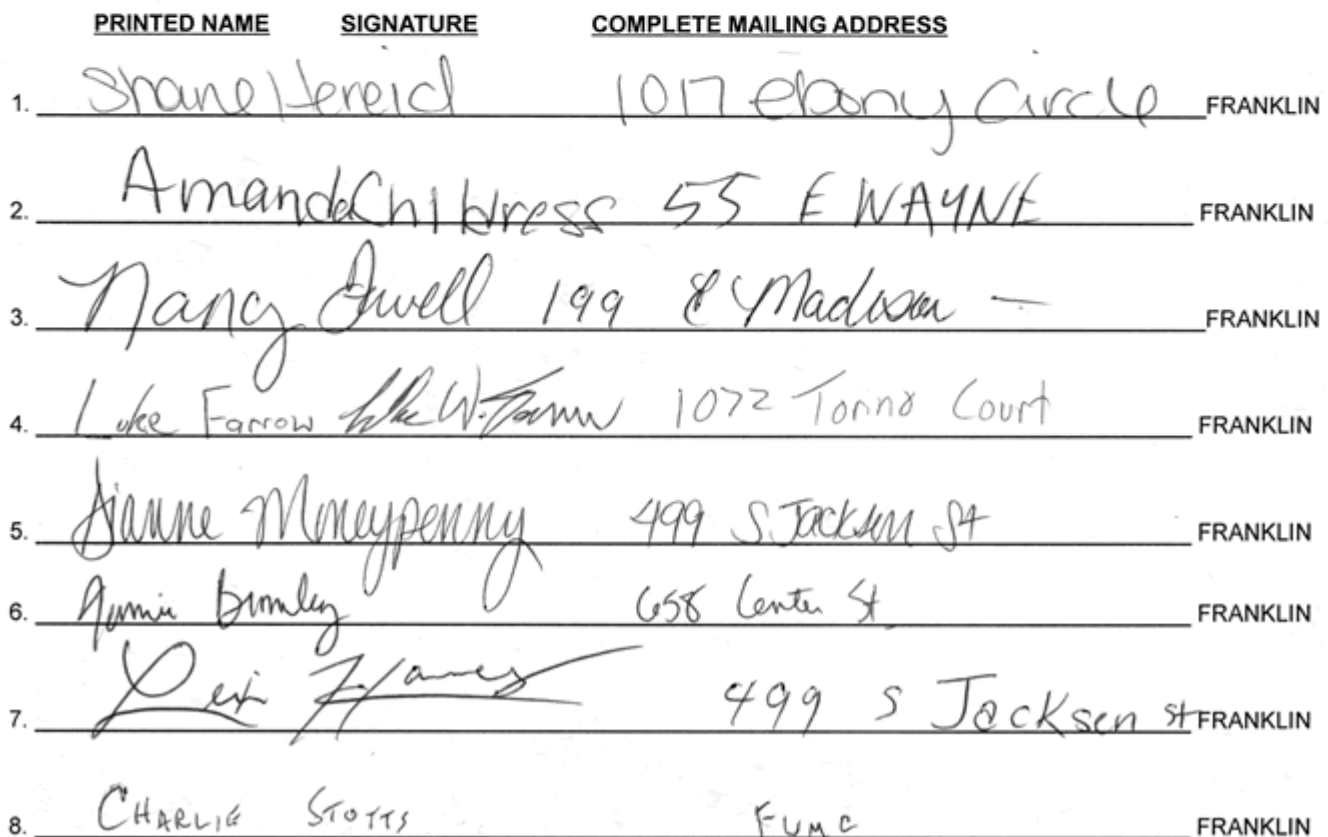 PRINTED NAME SIGNATURE COMPLETE MAILING ADDRESS
1. Shane Hereid 1017 ebony Circle FRANKLIN
2. Amanda Childress 55 E WAYNE FRANKLIN
3. Nancy 199 E Madison — FRANKLIN
4. Luke Farrow Luke W. Farrow 1072 Court FRANKLIN
5. Dianne Moneypenny 499 S Jackson St FRANKLIN
6. Jamie 658 Center St FRANKLIN
7. 499 S Jacksen St FRANKLIN
8. CHARLIE STOTTS FUMC FRANKLIN